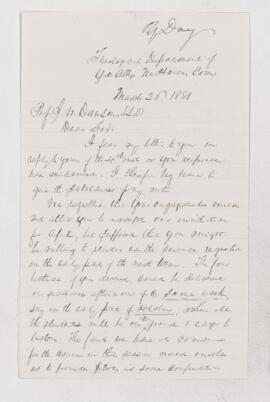 Theological Department of
Yale College New Haven, Conn
March 26, 1881
Prof J. W. Dawson, LLD
Dear Sir.
I fear my letter to you in
reply to yours of the or your response
has miscarried. I therefore beg leave to
give the substance of my note.
We regretted that your engagements would
not allow you to accept our invitation
for April, but suppose that you might
be willing to render us the service requested
in the early part of the next term. The four
lectures, if you choose, could be delivered
on successive afternoons of the same week,
say in the early part of October, when all
the students will be on the ground & eager to
listen. The fund we have at command
for the course in this season would enable
us to provide $200 as some compensation